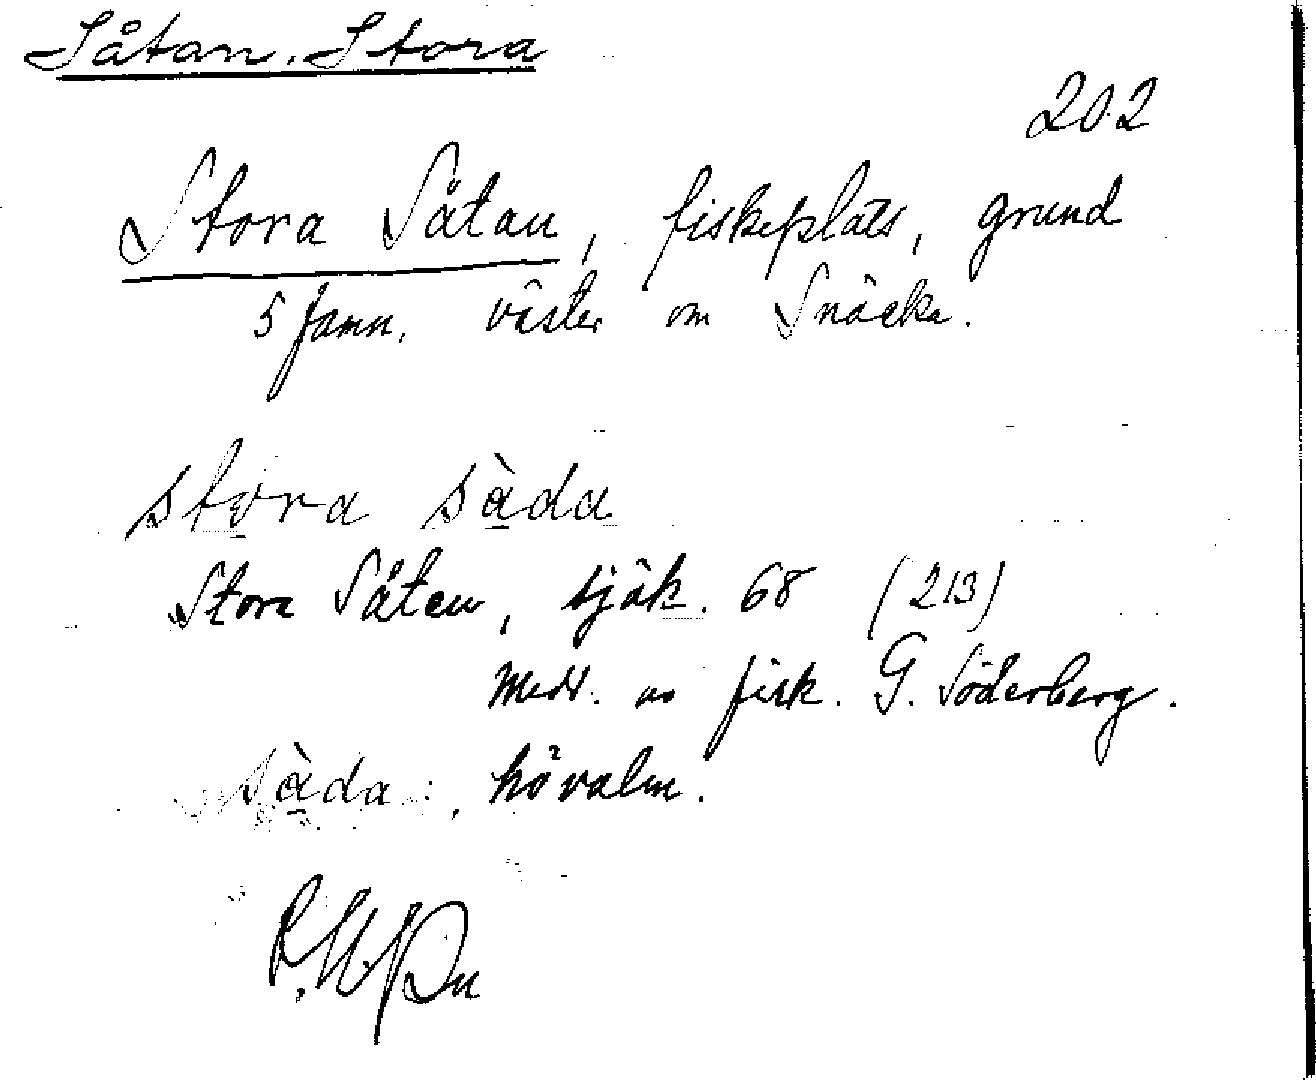 Såtan, Stora
202
Stora Såtan, fiskeplats, grund
5 famn. väster om Snäcka.
stora sàda
Stora Såtan, sjök. 68 (213)
Medd. av fisk. G. Söderberg.
sàda, hövalm.